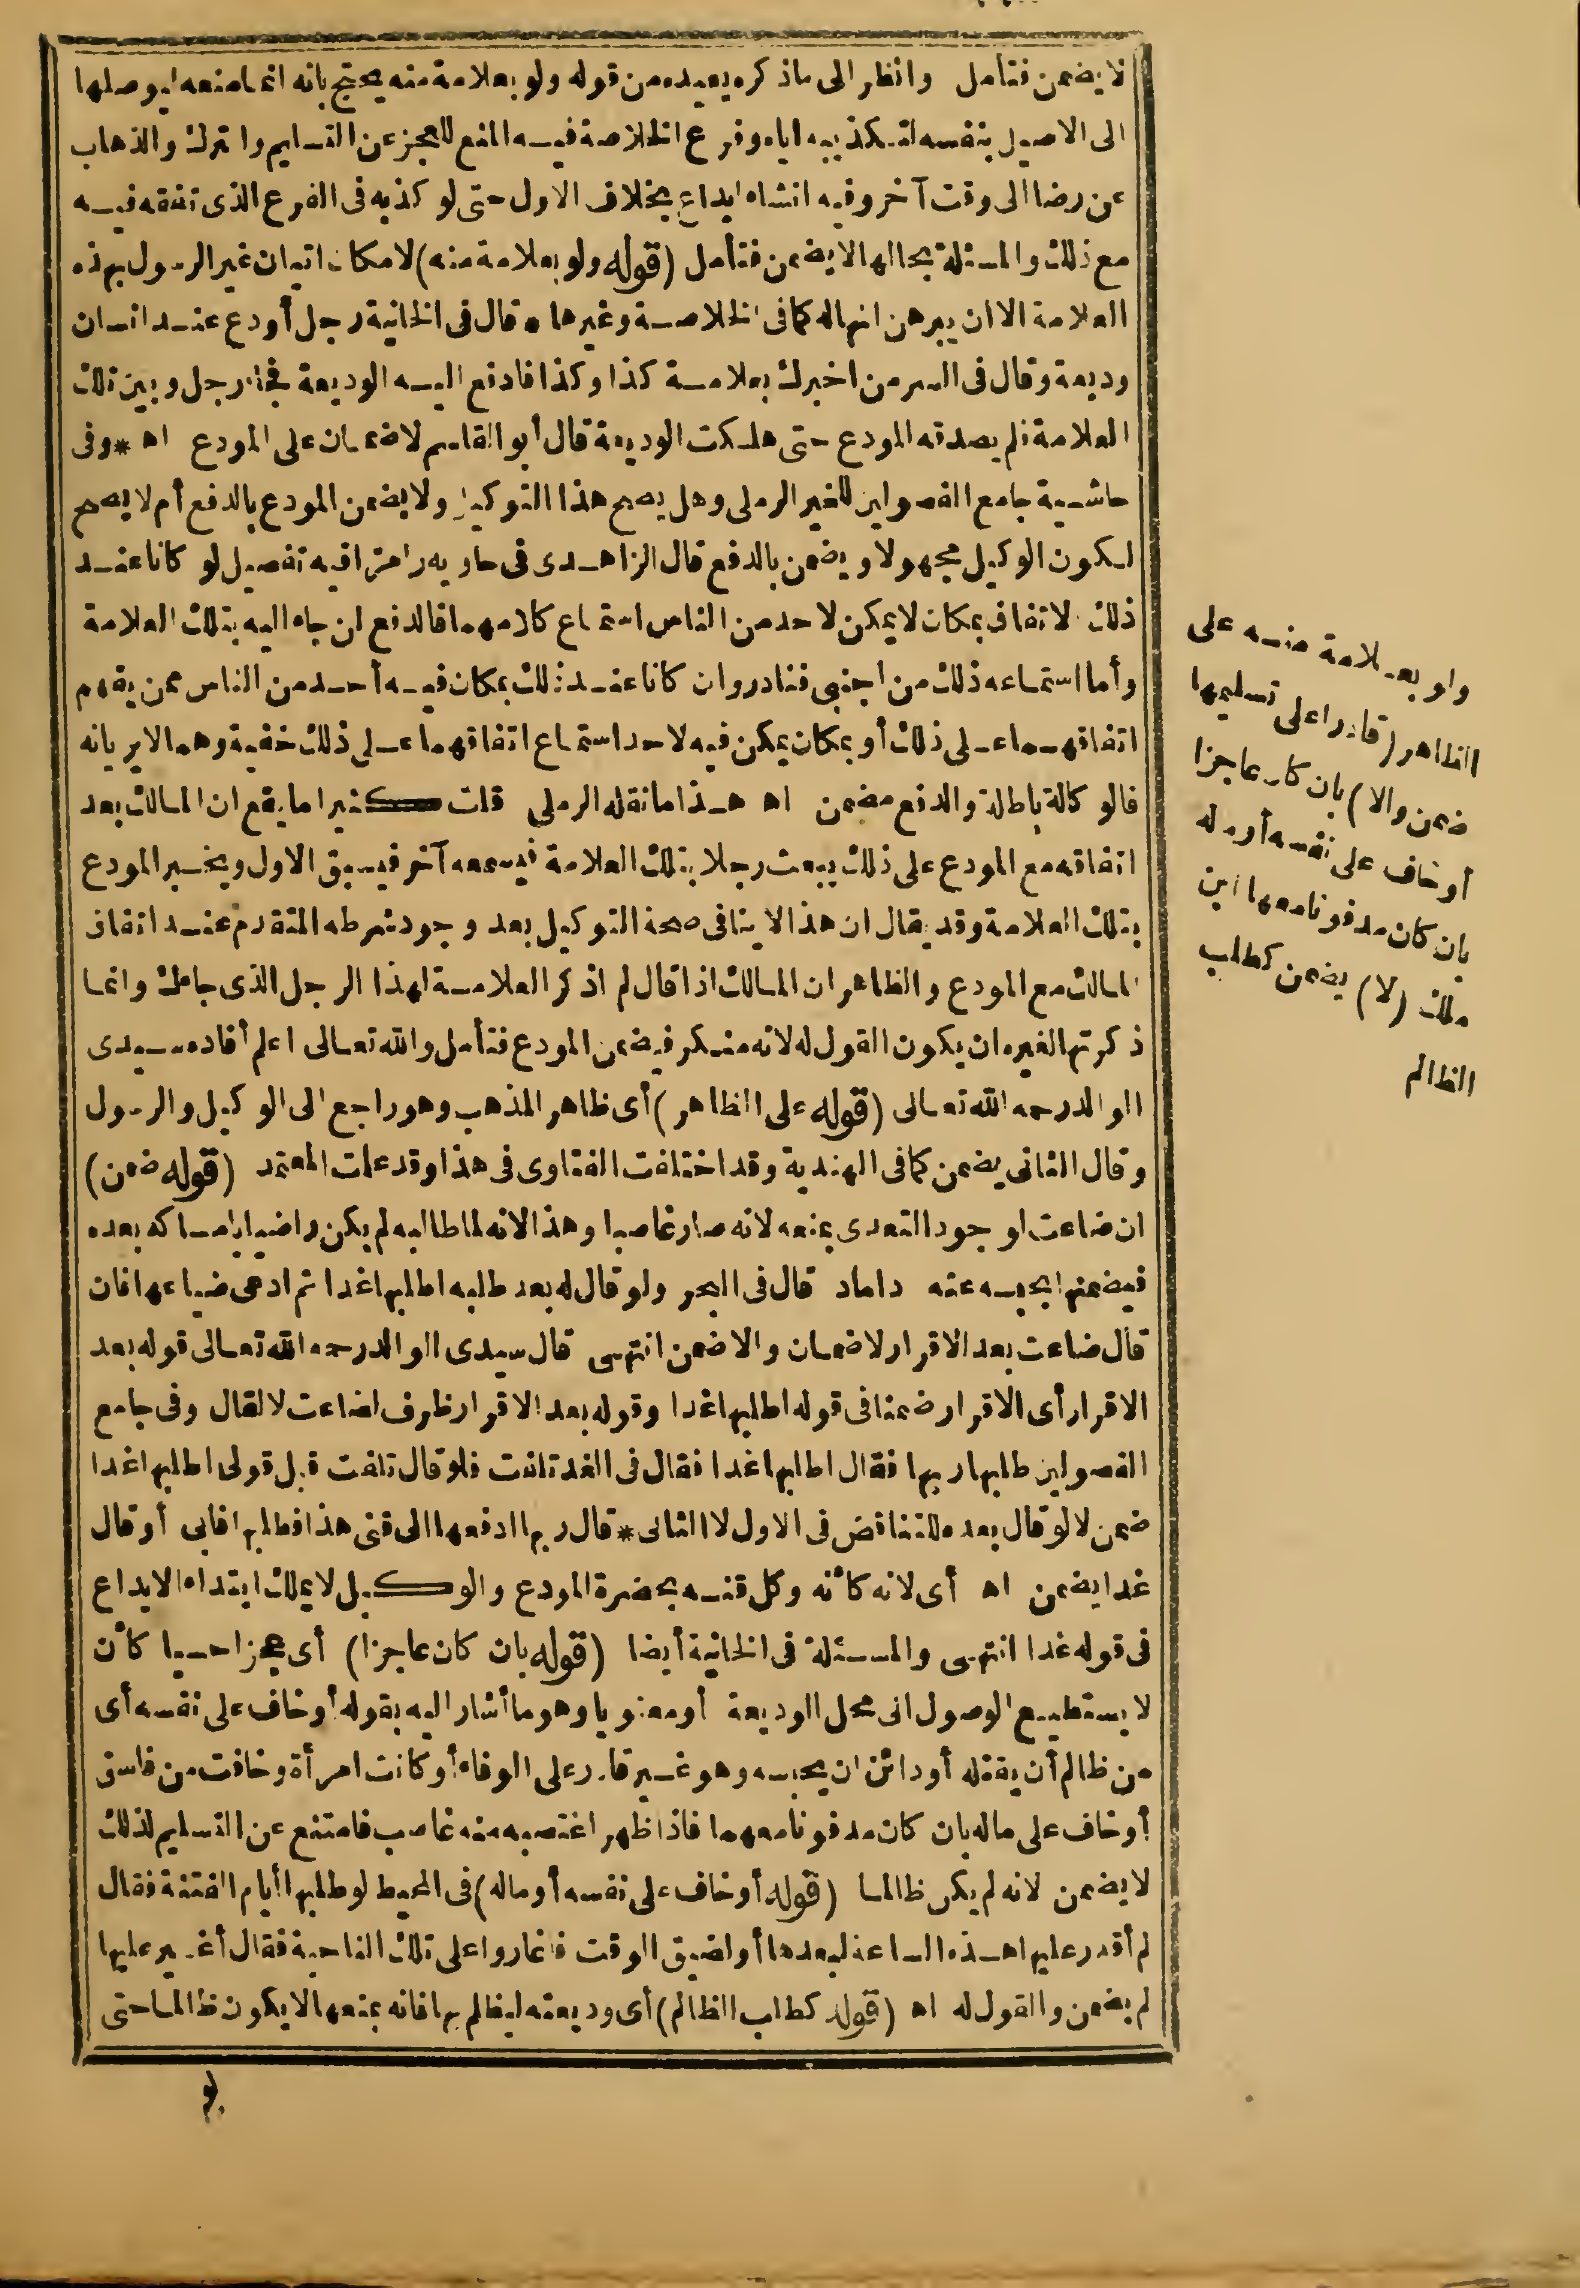 لا يضمن فتأمل وانظر الى ماذكره بعيده من قوله ولو بعلامة منه يحتج بانه انما منعه ليوصلها
الى الاصيل بنفسه لتكذيبه اياه وفرع الخلاصة فيه المنع للعجز عن التسليم والترك والذهاب
عن رضا الى وقت آخر وفيه انشاء ايداع بخلاف الاول حتى لو كذبه فى الفرع الذى تفقه فيه
مع ذلك والمسئلة بحالها لا يضمن فتأمل (قوله ولو بعلامة منه) لامكان اتيان غير الرسول بهذه
العلامة الا ان يبرهن انها له كما فى الخلاصة وغيرها • قال فى الخانية رجل أودع عند انسان
وديعة وقال فى السر من اخبرك بعلامة كذا وكذا فادفع اليه الوديعة فجاء رجل وبين تلك
العلامة فلم يصدقه المودع حتى هلكت الوديعة قال أبو القاسم لا ضمان على المودع اه * وفى
حاشية جامع الفصولين للخير الرملى وهل يصح هذا التوكيل ولا يضمن المودع بالدفع أم لا يصح
لكون الوكيل مجهولا ويضمن بالدفع قال الزاهدى فى حاويه رامزا فيه تفصيل لو كانا عند
ذلك الاتفاق بمكان لا يمكن لاحد من الناس استماع كلامهما فالدفع ان جاء اليه بتلك العلامة
وأما استماعه ذلك من اجنبى فنادر وان كانا عند ذلك بمكان فيه أحد من الناس ممن يفهم
اتفاقهما على ذلك أو بمكان يمكن فيه لاحد استماع اتفاقهما على ذلك خفية وهما لا يريانه
فالوكالة باطلة والدفع مضمن اه هذا ما نقله الرملى قلت كثيرا ما يقع ان المالك بعد
اتفاقه مع المودع على ذلك يبعث رجلا بتلك العلامة فيسمعه آخر فيسبق الاول ويخبر المودع
بتلك العلامة وقد يقال ان هذا لا ينافى صحة التوكيل بعد وجود شرطه المتقدم عند اتفاق
المالك مع المودع والظاهر ان المالك اذا قال لم اذكر العلامة لهذا الرجل الذى جاءك وانما
ذكرتها لغيره ان يكون القول له لانه منكر فيضمن المودع فتأمل والله تعالى اعلم أفاده سيدى
الوالد رحمه الله تعالى (قوله على الظاهر) أى ظاهر المذهب وهو راجع الى الوكيل والرسول
وقال الثانى يضمن كما فى الهندية وقد اختلفت الفتاوى فى هذا وقد علمت المعتمد (قوله ضمن)
ان ضاعت لوجود التعدى بمنعه لانه صار غاصبا وهذا لانه لما طالبه لم يكن راضيا بامساكه بعده
فيضمنها بحبسه عنه داماد قال فى البحر ولو قال له بعد طلبه اطلبها غدا ثم ادعى ضياعها فان
قال ضاعت بعد الاقرار لا ضمان والا ضمن انتهى قال سيدى الوالد رحمه الله تعالى قوله بعد
الاقرار أى الاقرار ضمنا فى قوله اطلبها غدا وقوله بعد الاقرار ظرف لضاعت لا لقال وفى جامع
الفصولين طلبها ربها فقال اطلبها غدا فقال فى الغد تلفت فلو قال تلفت قبل قولى اطلبها غدا
ضمن لا لو قال بعده للتناقض فى الاول لا الثانى * قال ربها ادفعها الى قنى هذا فطلبها فابى أو قال
غدا يضمن اه أى لانه كأنه وكل قنه بحضرة المودع والوكيل لا يملك ابتداء الايداع
فى قوله غدا انتهى والمسئلة فى الخانية أيضا (قوله بان كان عاجزا) أى عجزا حسيا كأن
لا يستطيع الوصول الى محل الوديعة أو معنويا وهو ما أشار اليه بقوله أو خاف على نفسه أى
من ظالم أن يقتله أو دائن ان يحبسه وهو غير قادر على الوفاء أو كانت امرأة وخافت من فاسق
أو خاف على ماله بان كان مدفونا معهما فاذا ظهر اغتصبه منه غاصب فامتنع عن التسليم لذلك
لا يضمن لانه لم يكن ظالما (قوله أو خاف على نفسه أو ماله) فى المحيط لو طلبها أيام الفتنة فقال
لم أقدر عليها هذه الساعة لبعدها أو لضيق الوقت فاغاروا على تلك الناحية فقال أغير عليها
لم يضمن والقول له اه (قوله كطلب الظالم) أى وديعته ليظلم بها فانه بمنعها لا يكون ظالما حتى
لو
ولو بعلامة منه على
الظاهر (قادرا على تسليمها
ضمن والا) بان كان عاجزا
أو خاف على نفسه أو ماله
بان كان مدفونا معها ابن
ملك (لا) يضمن كطلب
الظالم